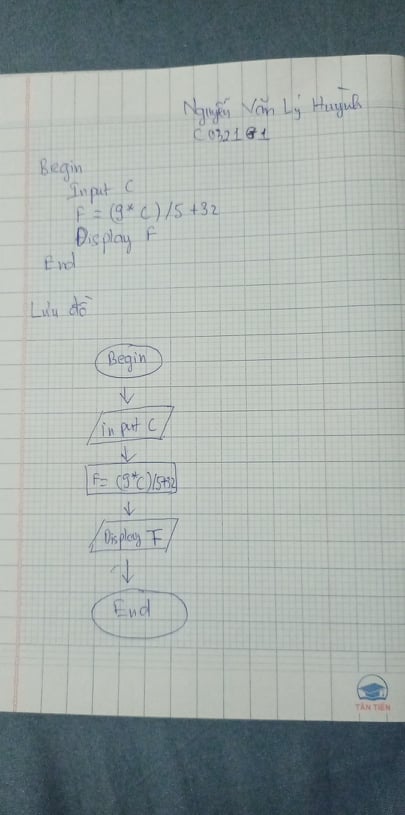 Nguyễn Văn Lý Huỳnh
Begin
Input C
F = (9* C) /5 +32
Display F
End
Lưu đồ
Begin
input C
F= (9*C)/5+32
Display F
End
TÂN TIẾN